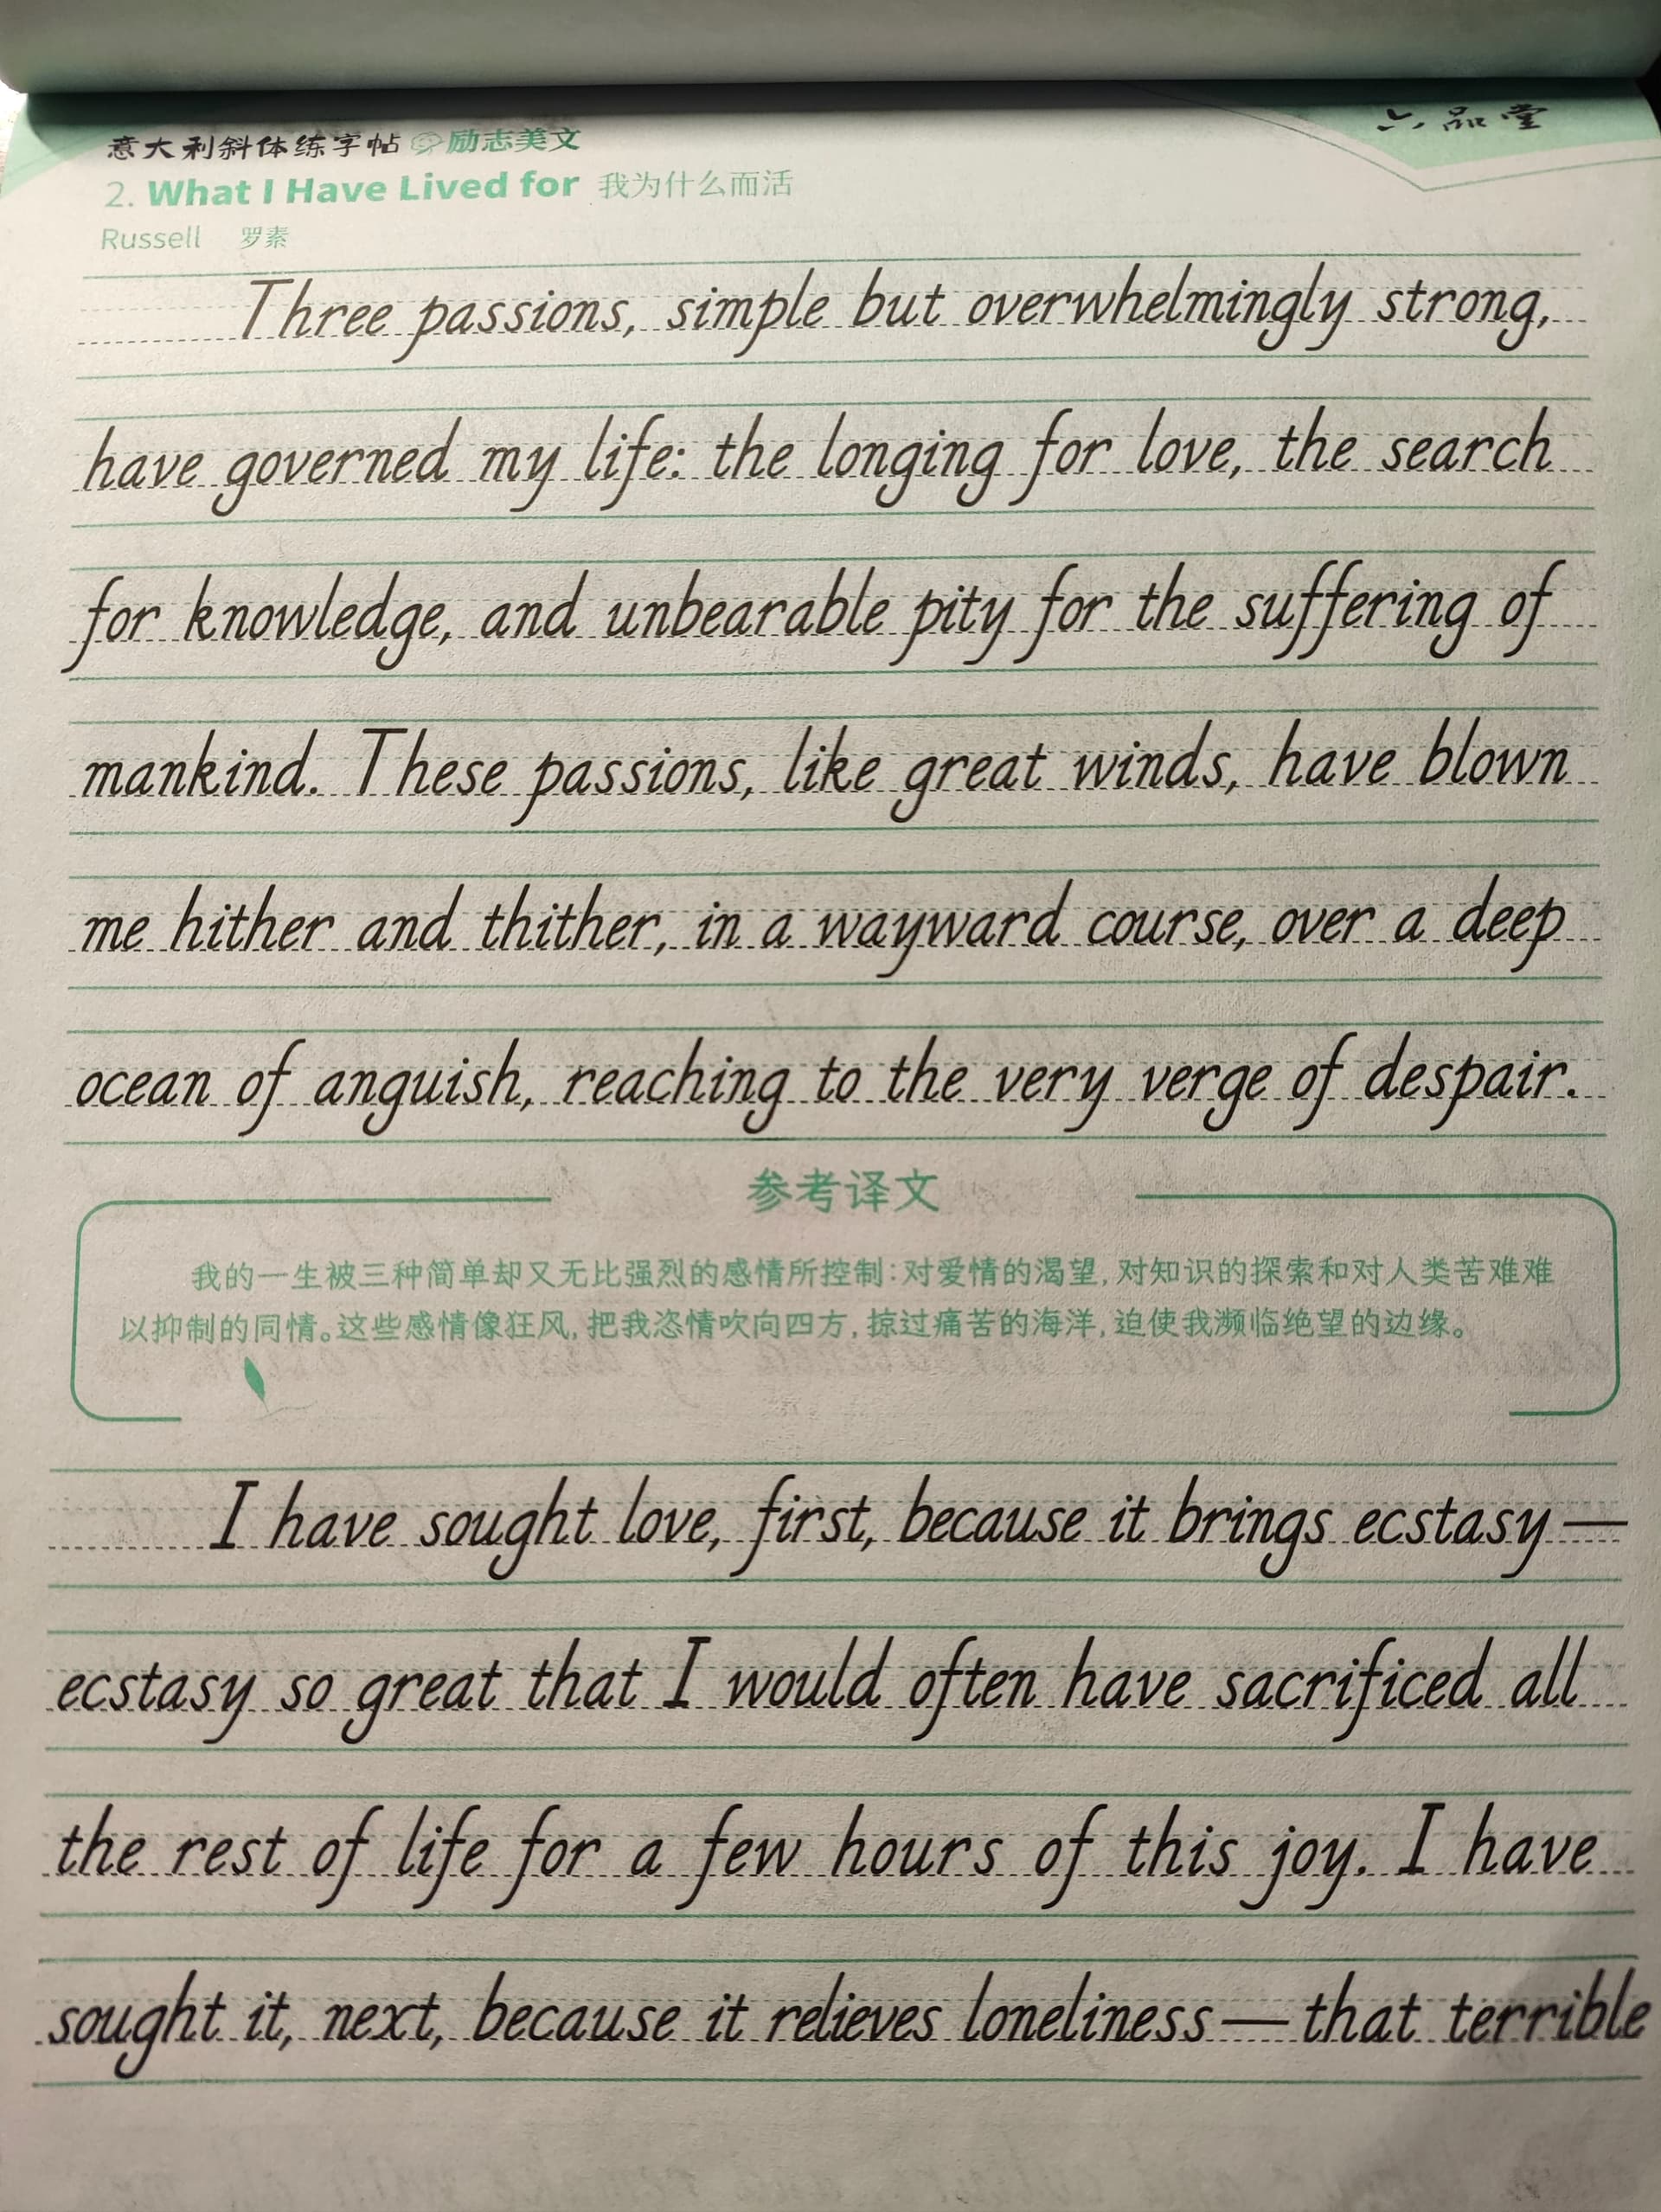 意大利斜体练字帖 励志美文
六品堂
2. What I Have Lived for 我为什么而活
Russell 罗素
Three passions, simple but overwhelmingly strong,
have governed my life: the longing for love, the search
for knowledge, and unbearable pity for the suffering of
mankind. These passions, like great winds, have blown
me hither and thither, in a wayward course, over a deep
ocean of anguish, reaching to the very verge of despair.
参考译文
我的一生被三种简单却又无比强烈的感情所控制:对爱情的渴望,对知识的探索和对人类苦难难
以抑制的同情。这些感情像狂风,把我恣情吹向四方,掠过痛苦的海洋,迫使我濒临绝望的边缘。
I have sought love, first, because it brings ecstasy—
ecstasy so great that I would often have sacrificed all
the rest of life for a few hours of this joy. I have
sought it, next, because it relieves loneliness—that terrible